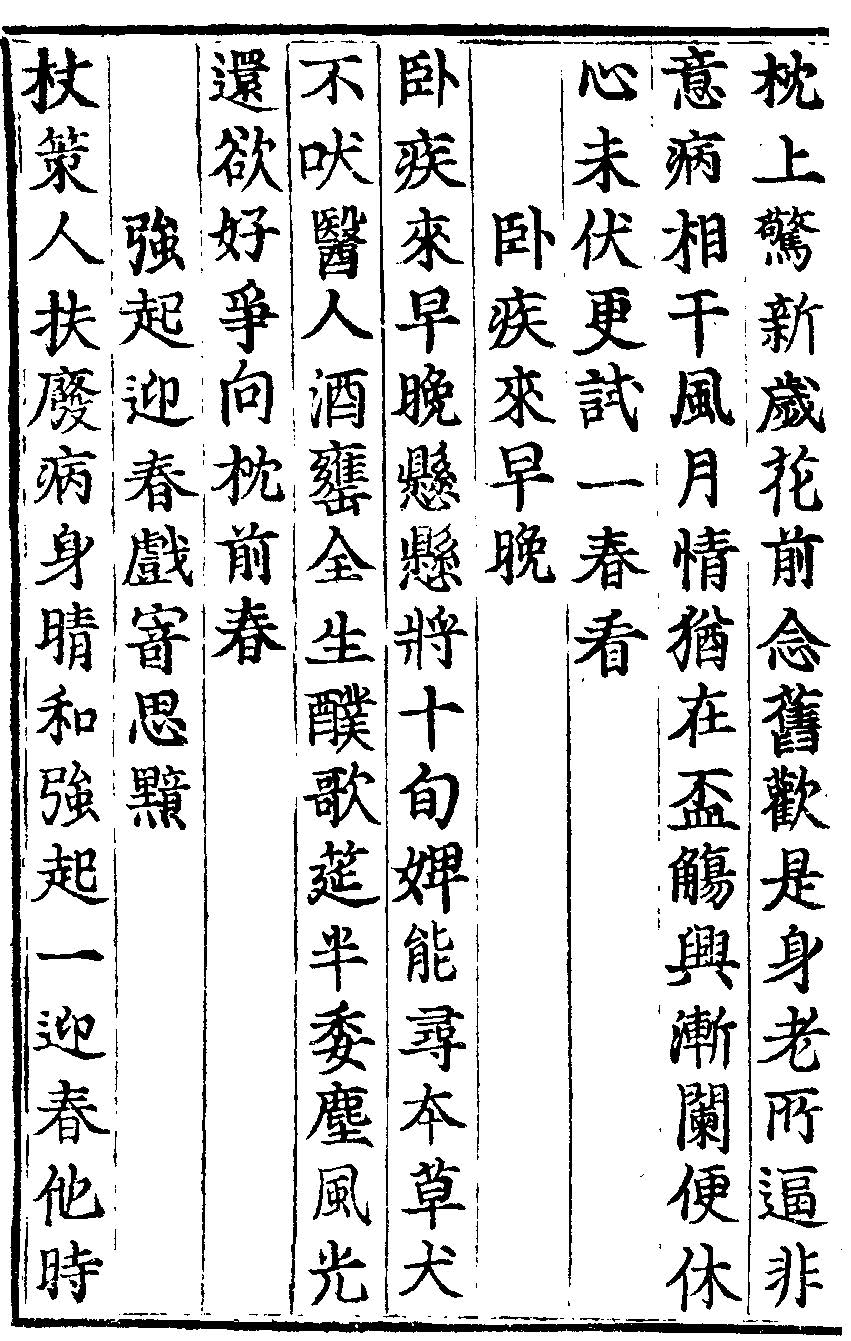 枕上驚新歲花前念舊歡是身老所逼非
意病相干風月情猶在盃觴興漸闌便休
心未伏更試一春看
卧疾來早晚
卧疾來早晚懸懸將十旬婢能尋本草犬
不吠醫人酒罋全生醭歌筵半委塵風光
還欲好爭向枕前春
強起迎春戲寄思黯
杖策人扶廢病身晴和強起一迎春他時